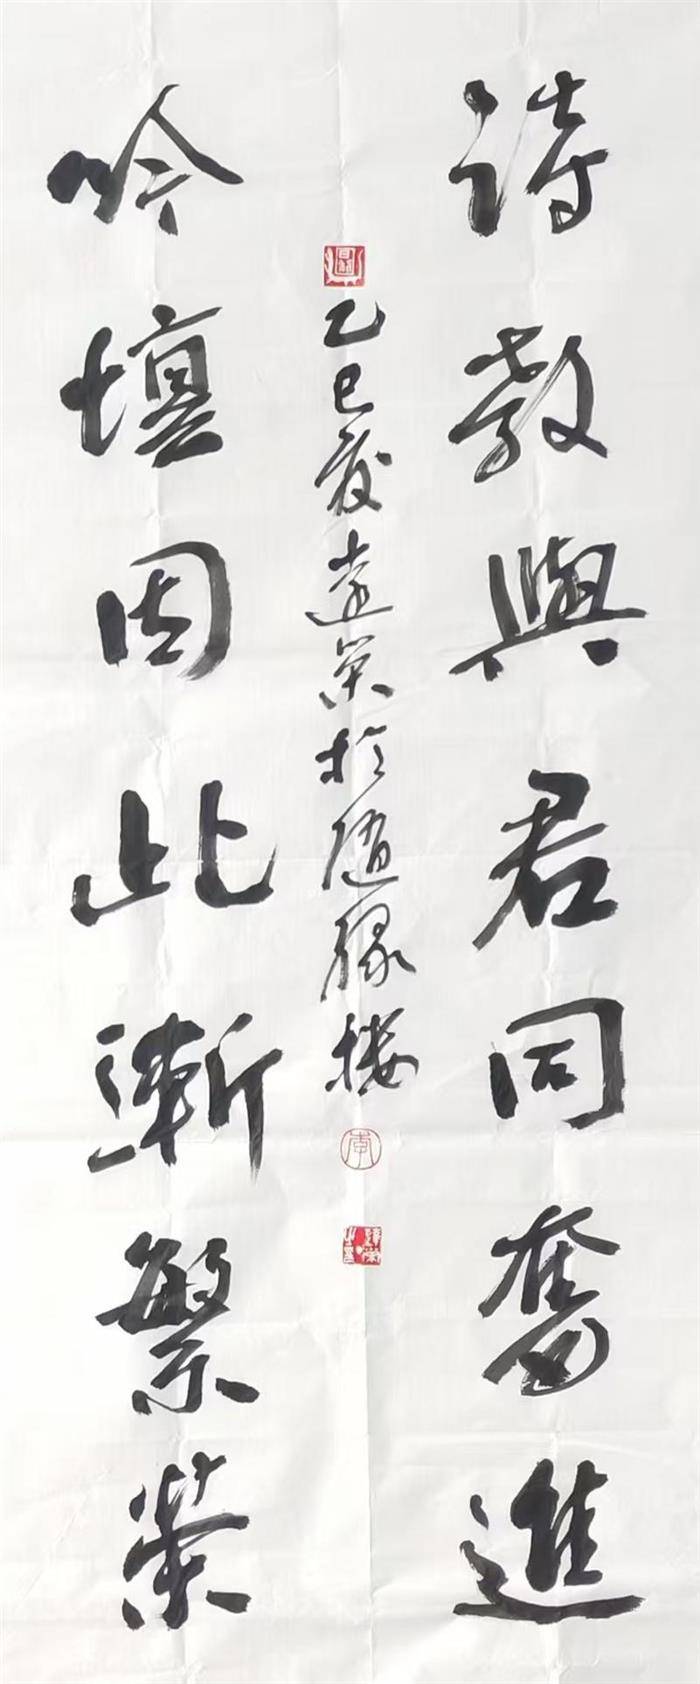 詩教與君同奮進
吟壇因此漸繁榮
乙巳夏遠榮於隨緣樓